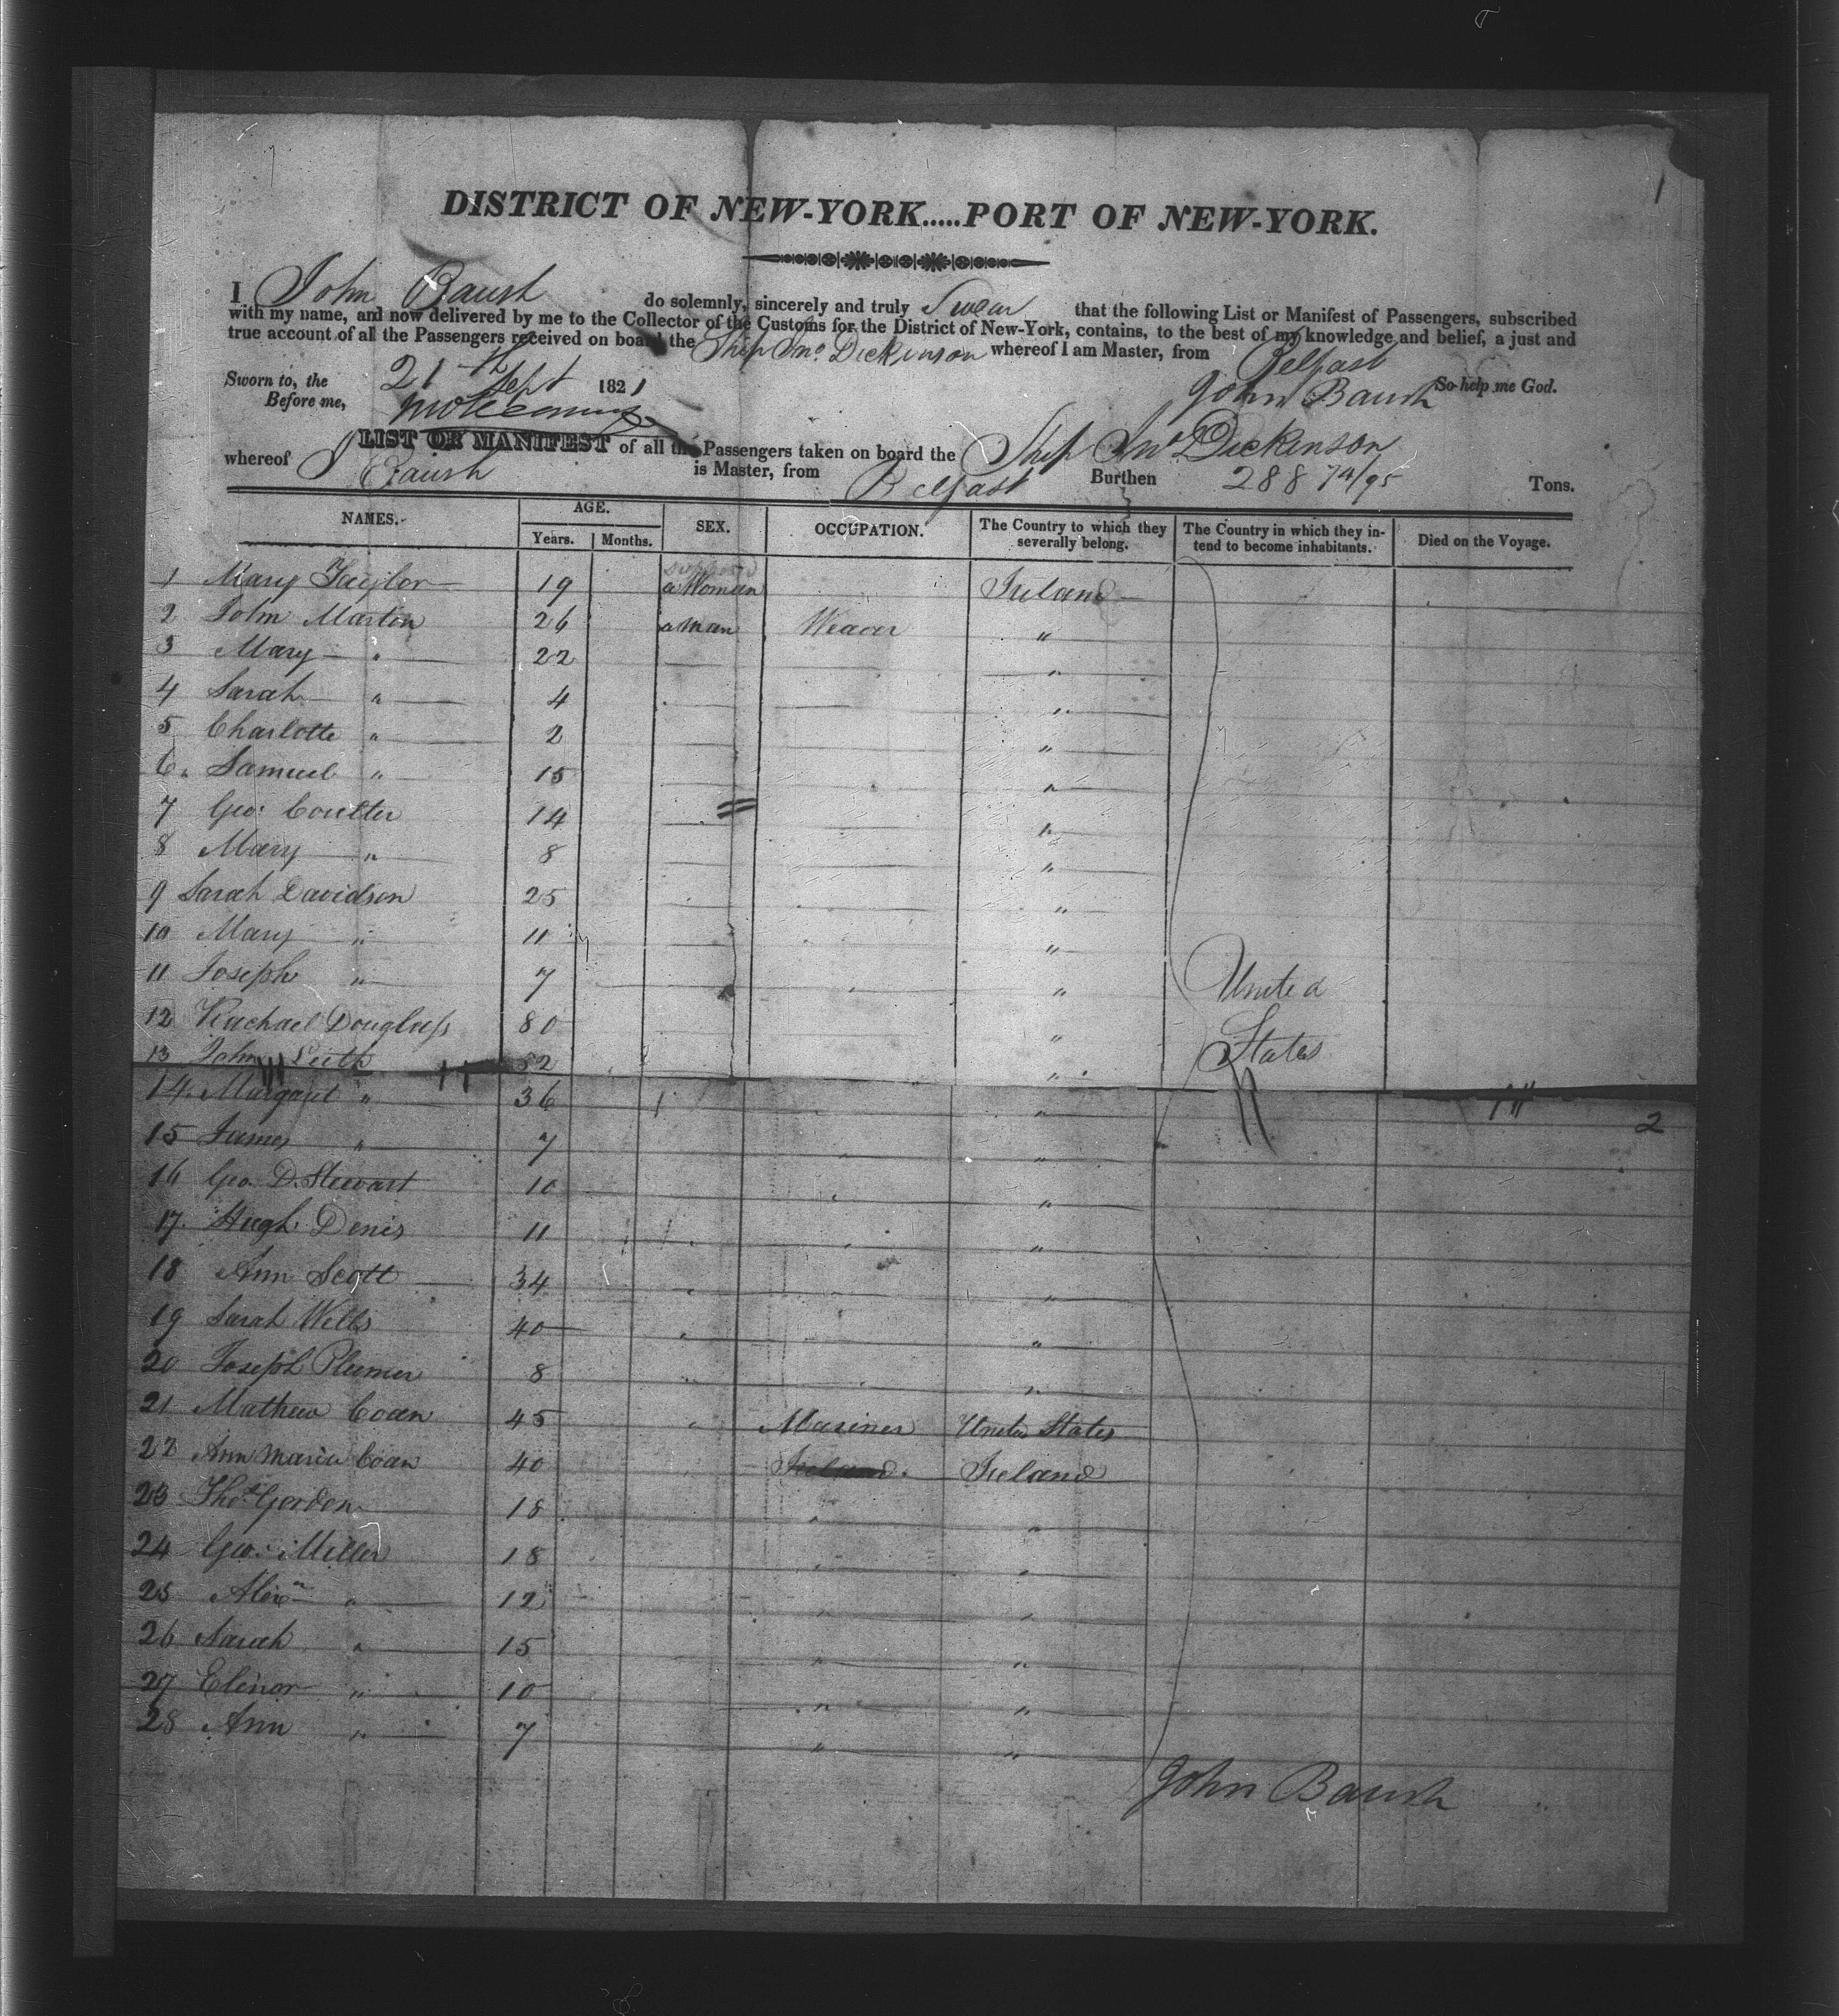 1
DISTRICT OF NEW-YORK.....PORT OF NEW-YORK.
I John Baush do solemnly, sincerely and truly Swear that the following List or Manifest of Passengers, subscribed
with my name, and now delivered by me to the Collector of the Customs for the District of New-York, contains, to the best of my knowledge and belief, a just and
true account of all the Passengers received on board the Ship Jno. Dickinson whereof I am Master, from Belfast
Sworn to, the 21th Sept 1821 So help me God.
Before me, John Baush
LIST OR MANIFEST of all the Passengers taken on board the Ship Jno Dickinson
whereof J Baush is Master, from Belfast Burthen 288 74/95 Tons.
NAMES. AGE. Years. Months. SEX. OCCUPATION. The Country to which they severally belong. The Country in which they intend to become inhabitants. Died on the Voyage.
1 Mary Taylor 19 a Woman Ireland
2 John Martin 26 a man Weaver "
3 Mary " 22 "
4 Sarah " 4 "
5 Charlotte " 2 "
6. Samuel " 15 "
7 Geo. Coulter 14 "
8 Mary " 8 "
9 Sarah Davidson 25 "
10 Mary " 11 "
11 Joseph " 7 " United
12 Rachael Douglass 80 " States
13 John Leith 52 "
14. Margaret " 36 "
2
15 James " 7 "
16 Geo. D. Stewart 10 "
17. Hugh Denis 11 "
18 Ann Scott 34 "
19 Sarah Wells 40 "
20 Joseph Plumer 8 "
21 Mathew Coan 45 Mariner United States
22 Ann Maria Coan 40 Ireland. Ireland
23 Thos Gordon 18 " "
24 Geo. Miller 18 " "
25 Alexr " 12 " "
26 Sarah " 15 " "
27 Elinor " 10 " "
28 Ann " 7 " "
John Baush